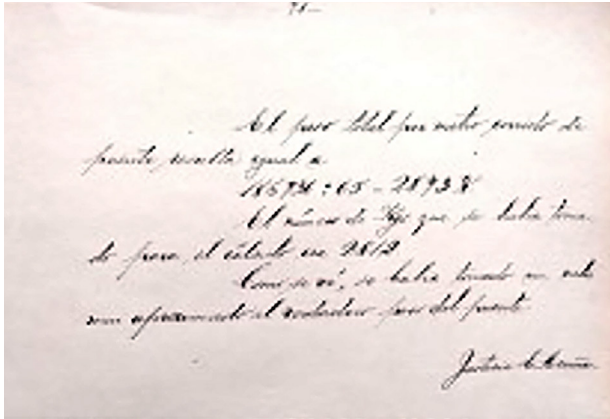 El peso total por metro corrido de
puente resulta igual a
El número de Kgs que se había toma-
do para el cálculo era 2812
Como se vé, se había tomado un
aproximado al verdadero peso del puente